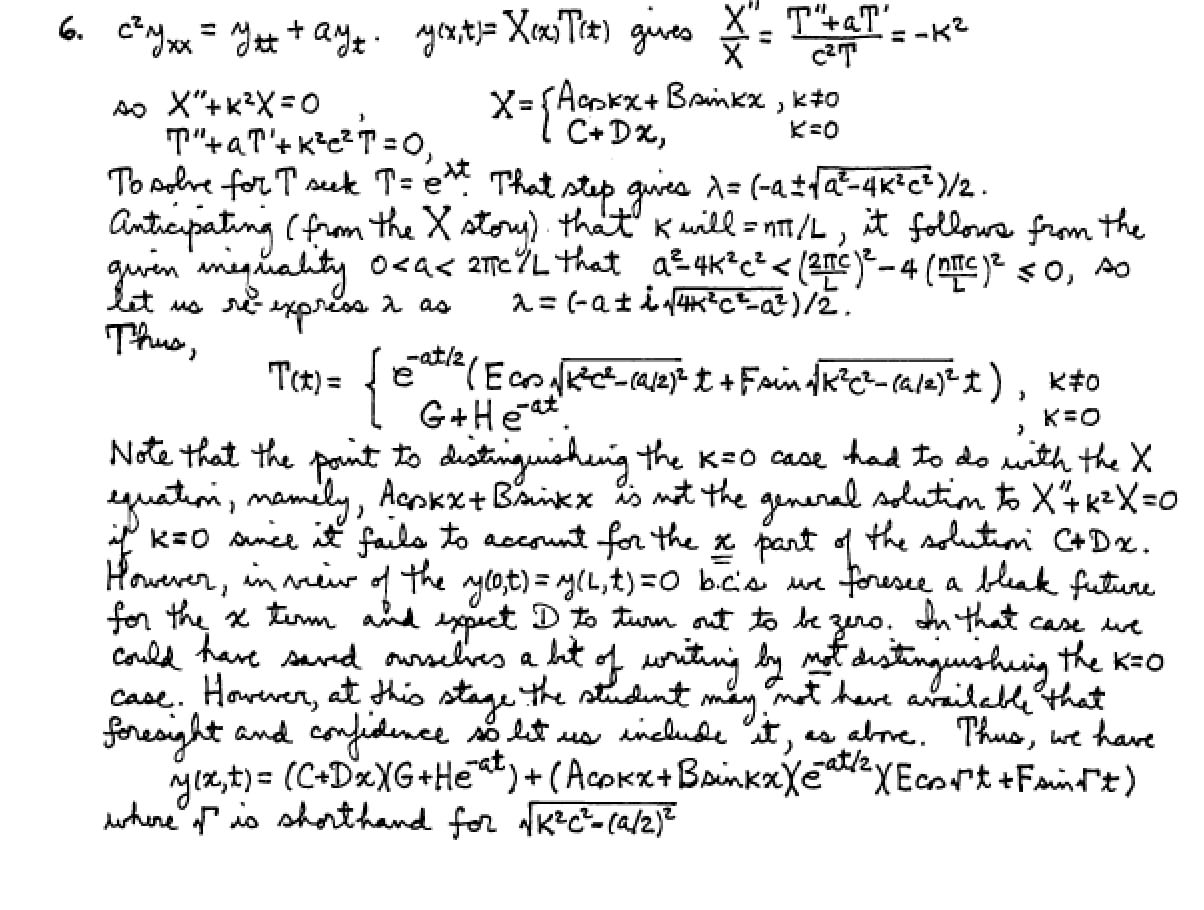 6. c²yₓₓ = yₜₜ + ayₜ. y(x,t)= X(x)T(t) gives X″/X = (T″+aT′)/(c²T) = -κ²
so X″+κ²X=0 , X= { Acosκx+Bsinκx , κ≠0
T″+aT′+κ²c²T=0, C+Dx, κ=0
To solve for T seek T= e^{λt}. That step gives λ= (-a±√(a²-4κ²c²))/2.
Anticipating (from the X story) that κ will = nπ/L, it follows from the
given inequality 0<a< 2πc/L that a²-4κ²c² < (2πc/L)²-4(nπc/L)² ≤0, so
let us re-express λ as λ= (-a± i√(4κ²c²-a²))/2.
Thus,
T(t)= { e^{-at/2}(Ecos√(κ²c²-(a/2)²) t + Fsin√(κ²c²-(a/2)²) t) , κ≠0
G+He^{-at}. , κ=0
Note that the point to distinguishing the κ=0 case had to do with the X
equation, namely, Acosκx+Bsinκx is not the general solution to X″+κ²X=0
if κ=0 since it fails to account for the x part of the solution C+Dx.
However, in view of the y(0,t)=y(L,t)=0 b.c.'s we foresee a bleak future
for the x term and expect D to turn out to be zero. In that case we
could have saved ourselves a bit of writing by not distinguishing the κ=0
case. However, at this stage the student may not have available that
foresight and confidence so let us include it, as above. Thus, we have
y(x,t)= (C+Dx)(G+He^{-at})+(Acosκx+Bsinκx)(e^{-at/2})(Ecos√ t +Fsin√ t)
where √ is shorthand for √(κ²c²-(a/2)²)